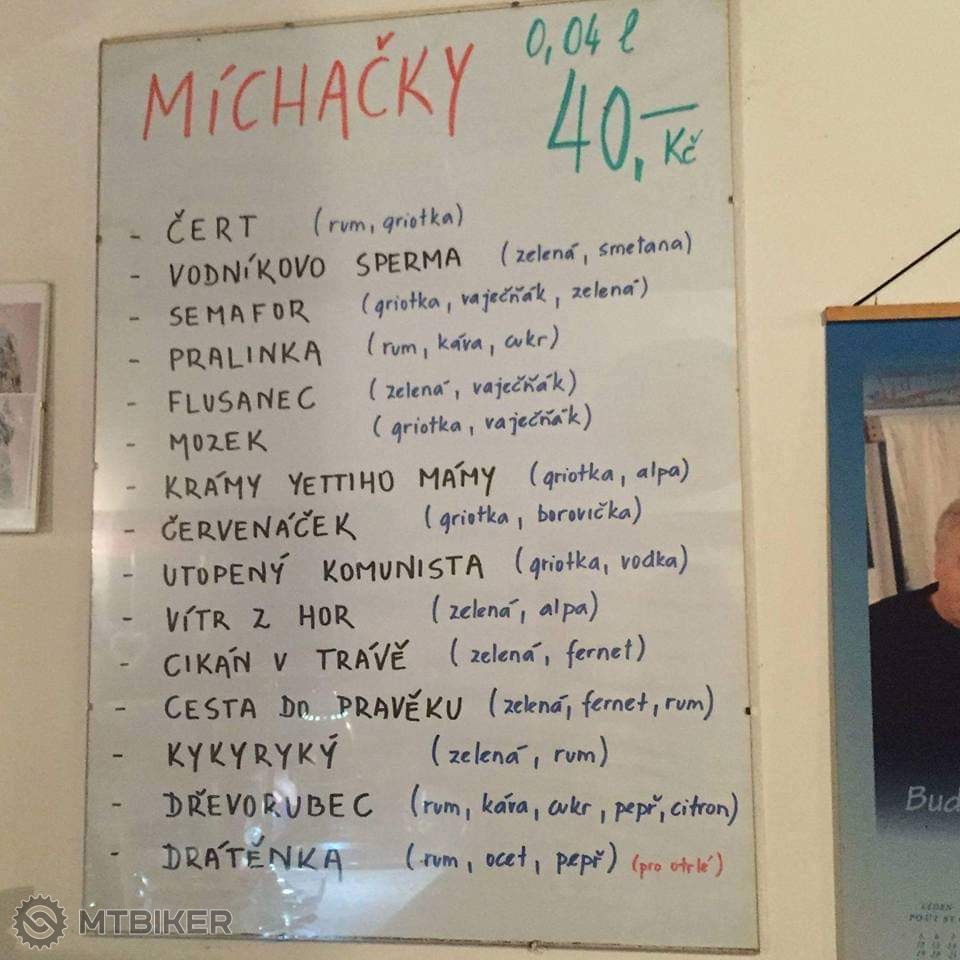 MÍCHAČKY 0,04 l
40,- Kč
- ČERT (rum, griotka)
- VODNÍKOVO SPERMA (zelená, smetana)
- SEMAFOR (griotka, vaječňák, zelená)
- PRALINKA (rum, káva, cukr)
- FLUSANEC (zelená, vaječňák)
- MOZEK (griotka, vaječňák)
- KRÁMY YETTIHO MÁMY (griotka, alpa)
- ČERVENÁČEK (griotka, borovička)
- UTOPENÝ KOMUNISTA (griotka, vodka)
- VÍTR Z HOR (zelená, alpa)
- CIKÁN V TRÁVĚ (zelená, fernet)
- CESTA DO PRAVĚKU (zelená, fernet, rum)
- KYKYRYKÝ (zelená, rum)
- DŘEVORUBEC (rum, káva, cukr, pepř, citron)
- DRÁTĚNKA (rum, ocet, pepř) (pro otrlé)
Bud
LEDEN
MTBIKER